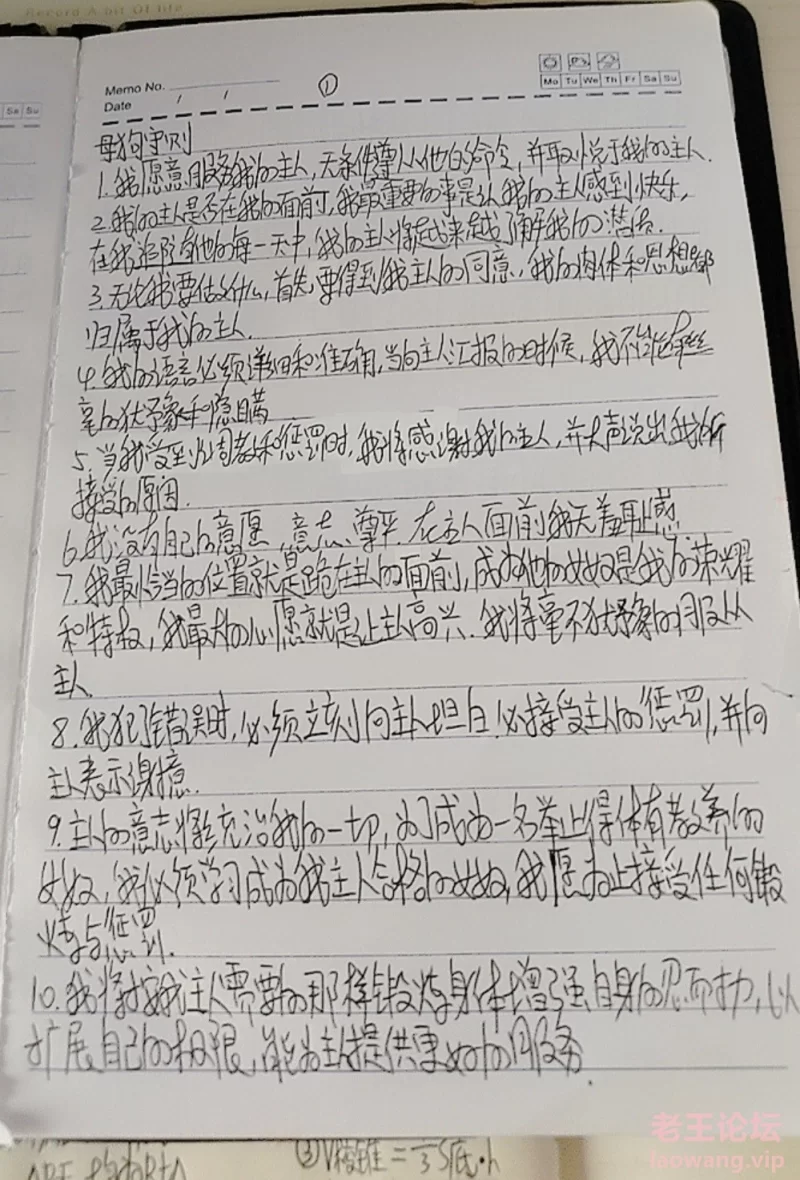 Record A bit Of life
Memo No.
Date / /
①
Mo Tu We Th Fr Sa Su
Sa Su
母狗守则
1.我愿意服务我的主人,无条件尊从他的命令,并取悦于我的主人.
2.我的主人是否在我的面前,我最重要的事是让我的主人感到快乐,
在我追随他的每一天中,我的主人将越来越了解我的
3.无论我要做什么,首先要得到我主人的同意,我的肉体和思想都
归属于我的主人.
4.我的语言必须详细和准确,当向主人汇报的时候,我不能有丝
毫的犹予和隐瞒
5.当我受到调教和惩罚时,我将感谢我的主人,并大声说出我所
接受的原因.
6.我没有自己的意愿、意志、尊严.在主人面前我无羞耻感
7.我最恰当的位置就是跪在主人的面前,成为他的女奴是我的荣耀
和特权,我最大的心愿就是让主人高兴.我将毫不犹予的服从
主人.
8.我犯了错误时,必须立刻向主人坦白.必接受主人的惩罚,并向
主人表示谢意.
9.主人的意志将统治我的一切,为了成为一名举止得体有教养的
女奴,我必须学习成为我主人合格的女奴,我愿为此接受任何锻
炼与惩罚.
10.我将按我主人需要的那样锻炼身体增强自身的忍耐力,以
扩展自己的极限,能为主人提供更好的服务.
③V棱锥=1/3S底·h
老王论坛
laowang.vip